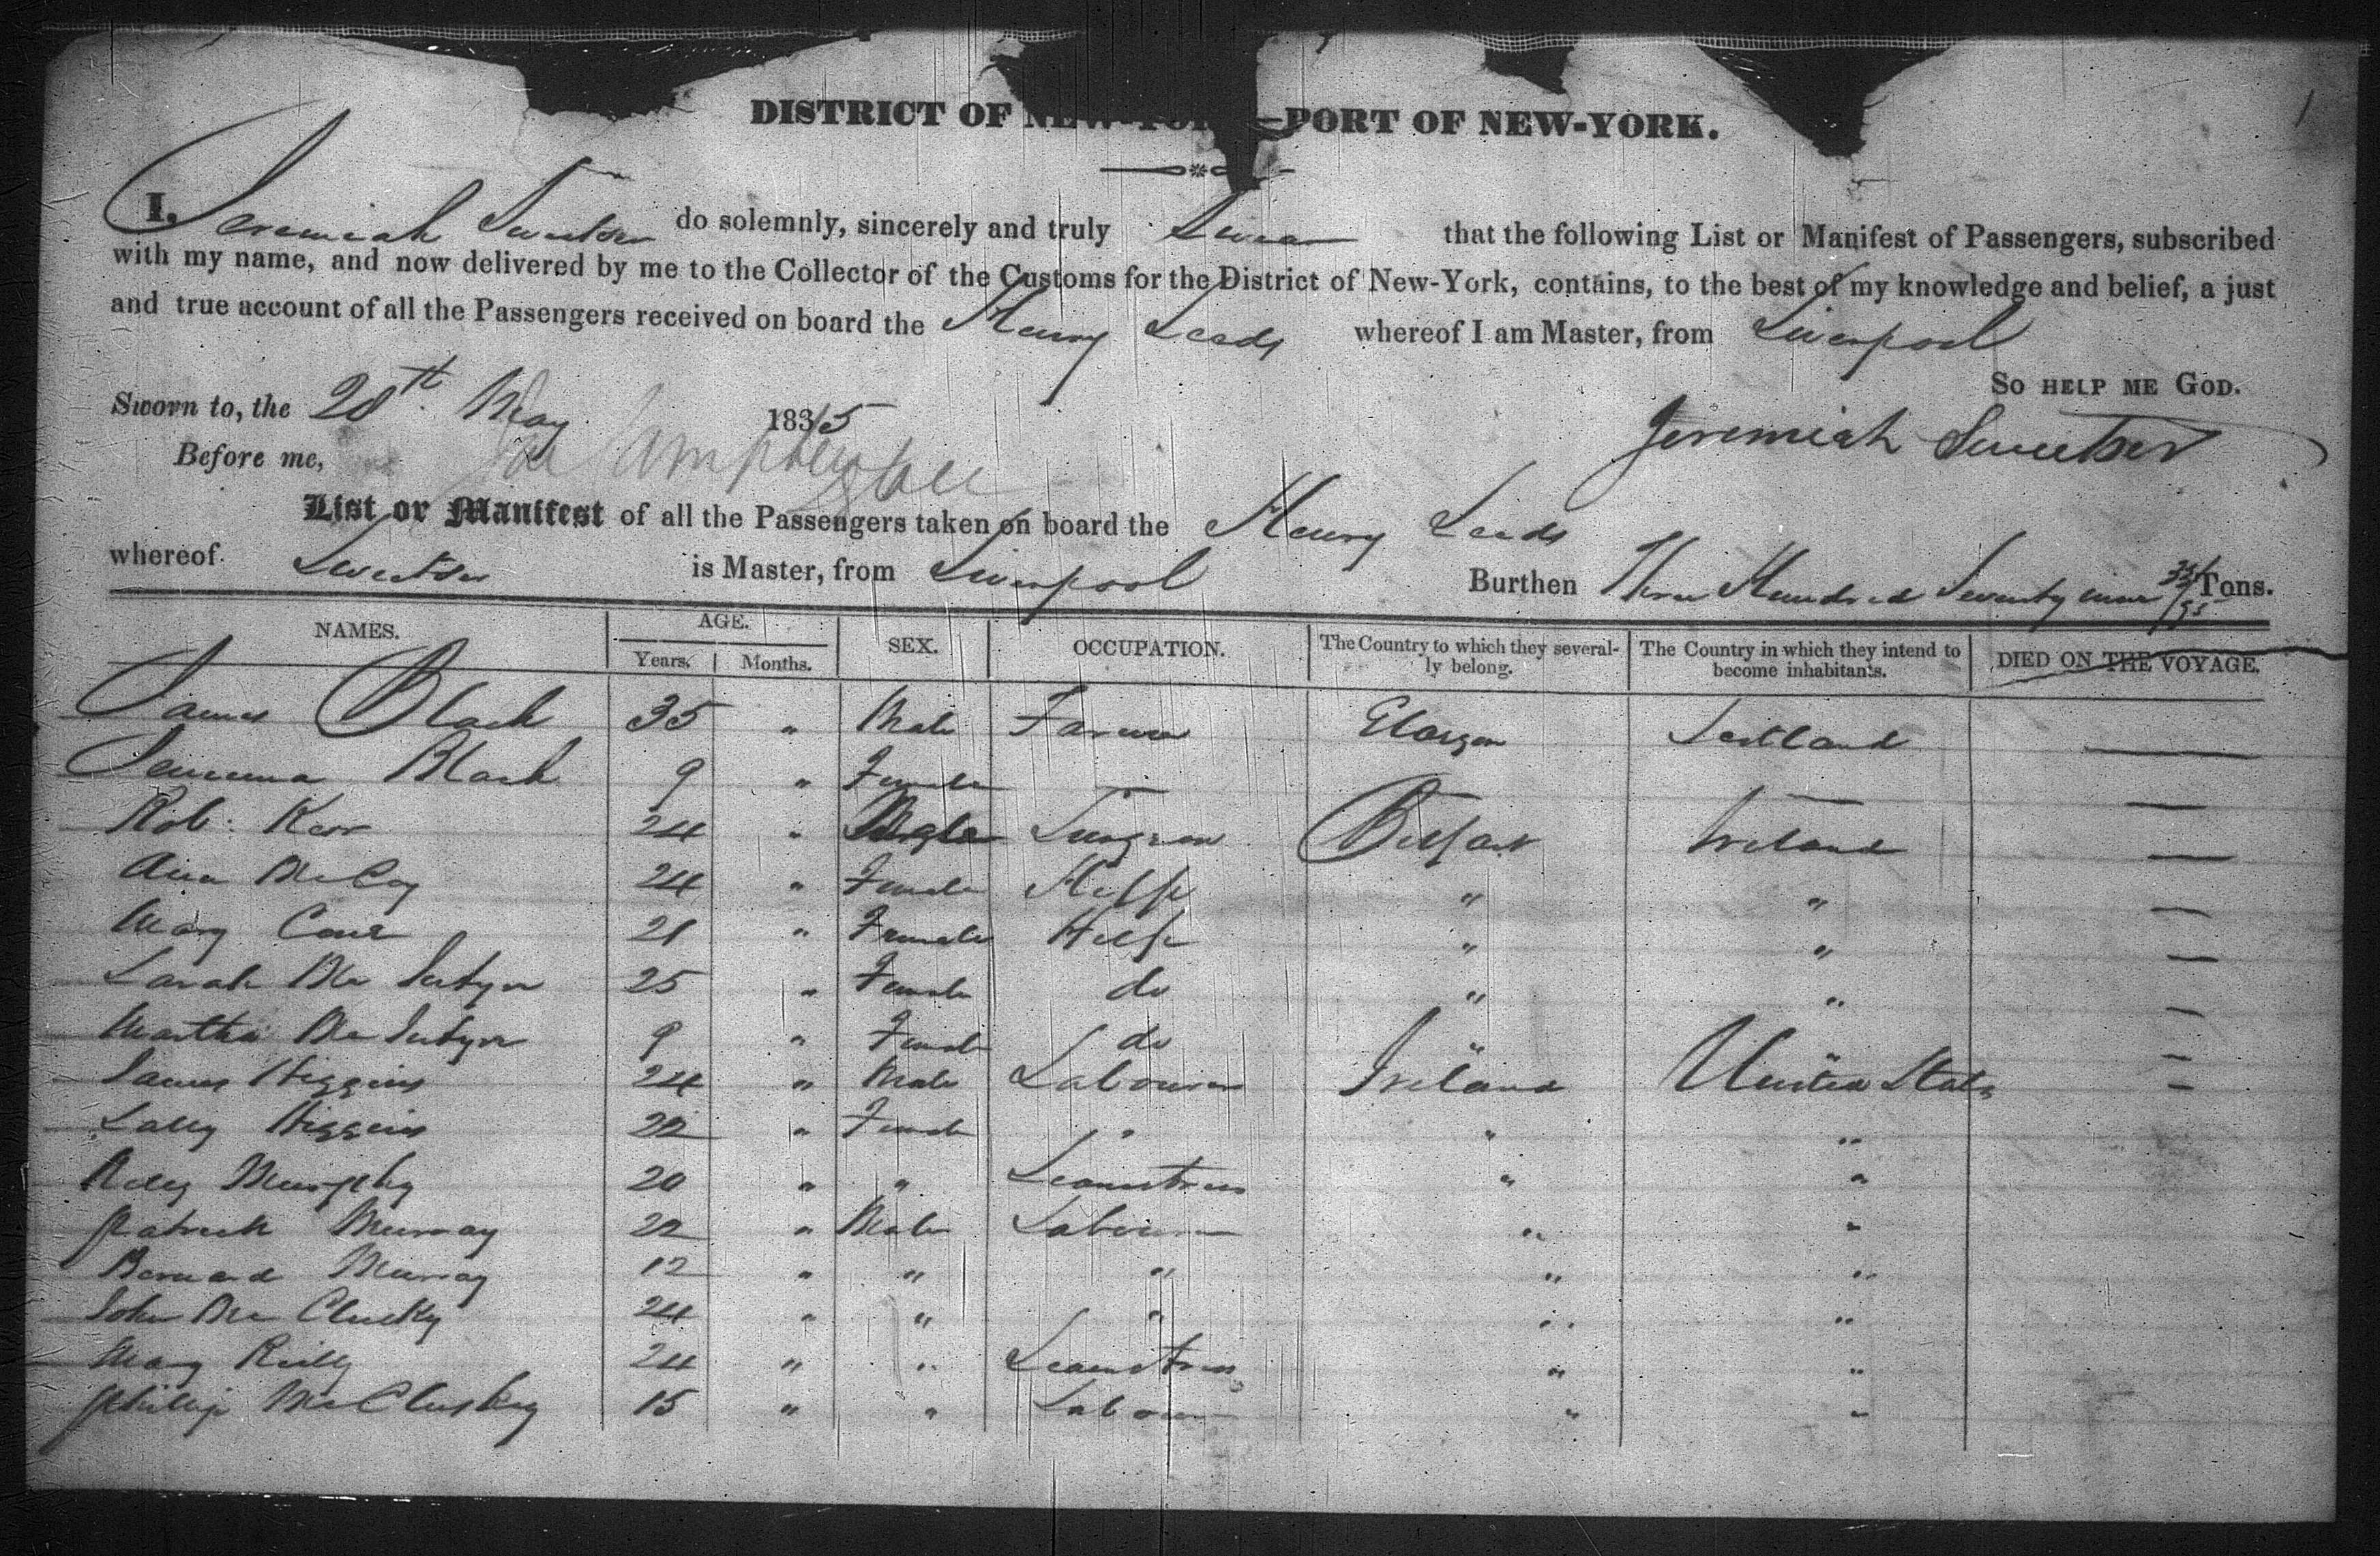 DISTRICT OF NEW-YORK—PORT OF NEW-YORK.
I, Jeremiah Sweetser do solemnly, sincerely and truly Swear that the following List or Manifest of Passengers, subscribed
with my name, and now delivered by me to the Collector of the Customs for the District of New-York, contains, to the best of my knowledge and belief, a just
and true account of all the Passengers received on board the Henry Leeds whereof I am Master, from Liverpool
SO HELP ME GOD.
Sworn to, the 20th May 1835
Jeremiah Sweetser
Before me,
List or Manifest of all the Passengers taken on board the Henry Leeds
whereof Sweetser is Master, from Liverpool Burthen Three Hundred Seventy nine Tons.
NAMES. AGE. Years. Months. SEX. OCCUPATION. The Country to which they severally belong. The Country in which they intend to become inhabitants. DIED ON THE VOYAGE.
James Black 35 " Male Farmer Glasgow Scotland —
Black 9 " Female —
Rob: Kerr 24 " Male Belfast Ireland —
Ann McCoy 24 " Female Help " " —
Mary 21 " Female Help " " —
Sarah Mc Intyre 25 " Female do " " —
Martha Mc Intyre 9 " Female do " " —
James Higgins 24 " Male Labourer Ireland United States —
Sally Higgins 22 " Female " " "
Murphy 20 " " Seamstress " "
Patrick Murray 22 " Male Labourer " "
Bernard Murray 12 " " " " "
John Mc Clusky 24 " " " " "
Mary Reilly 24 " " Seamstress " "
Phillip McClusky 15 " " Labour " "